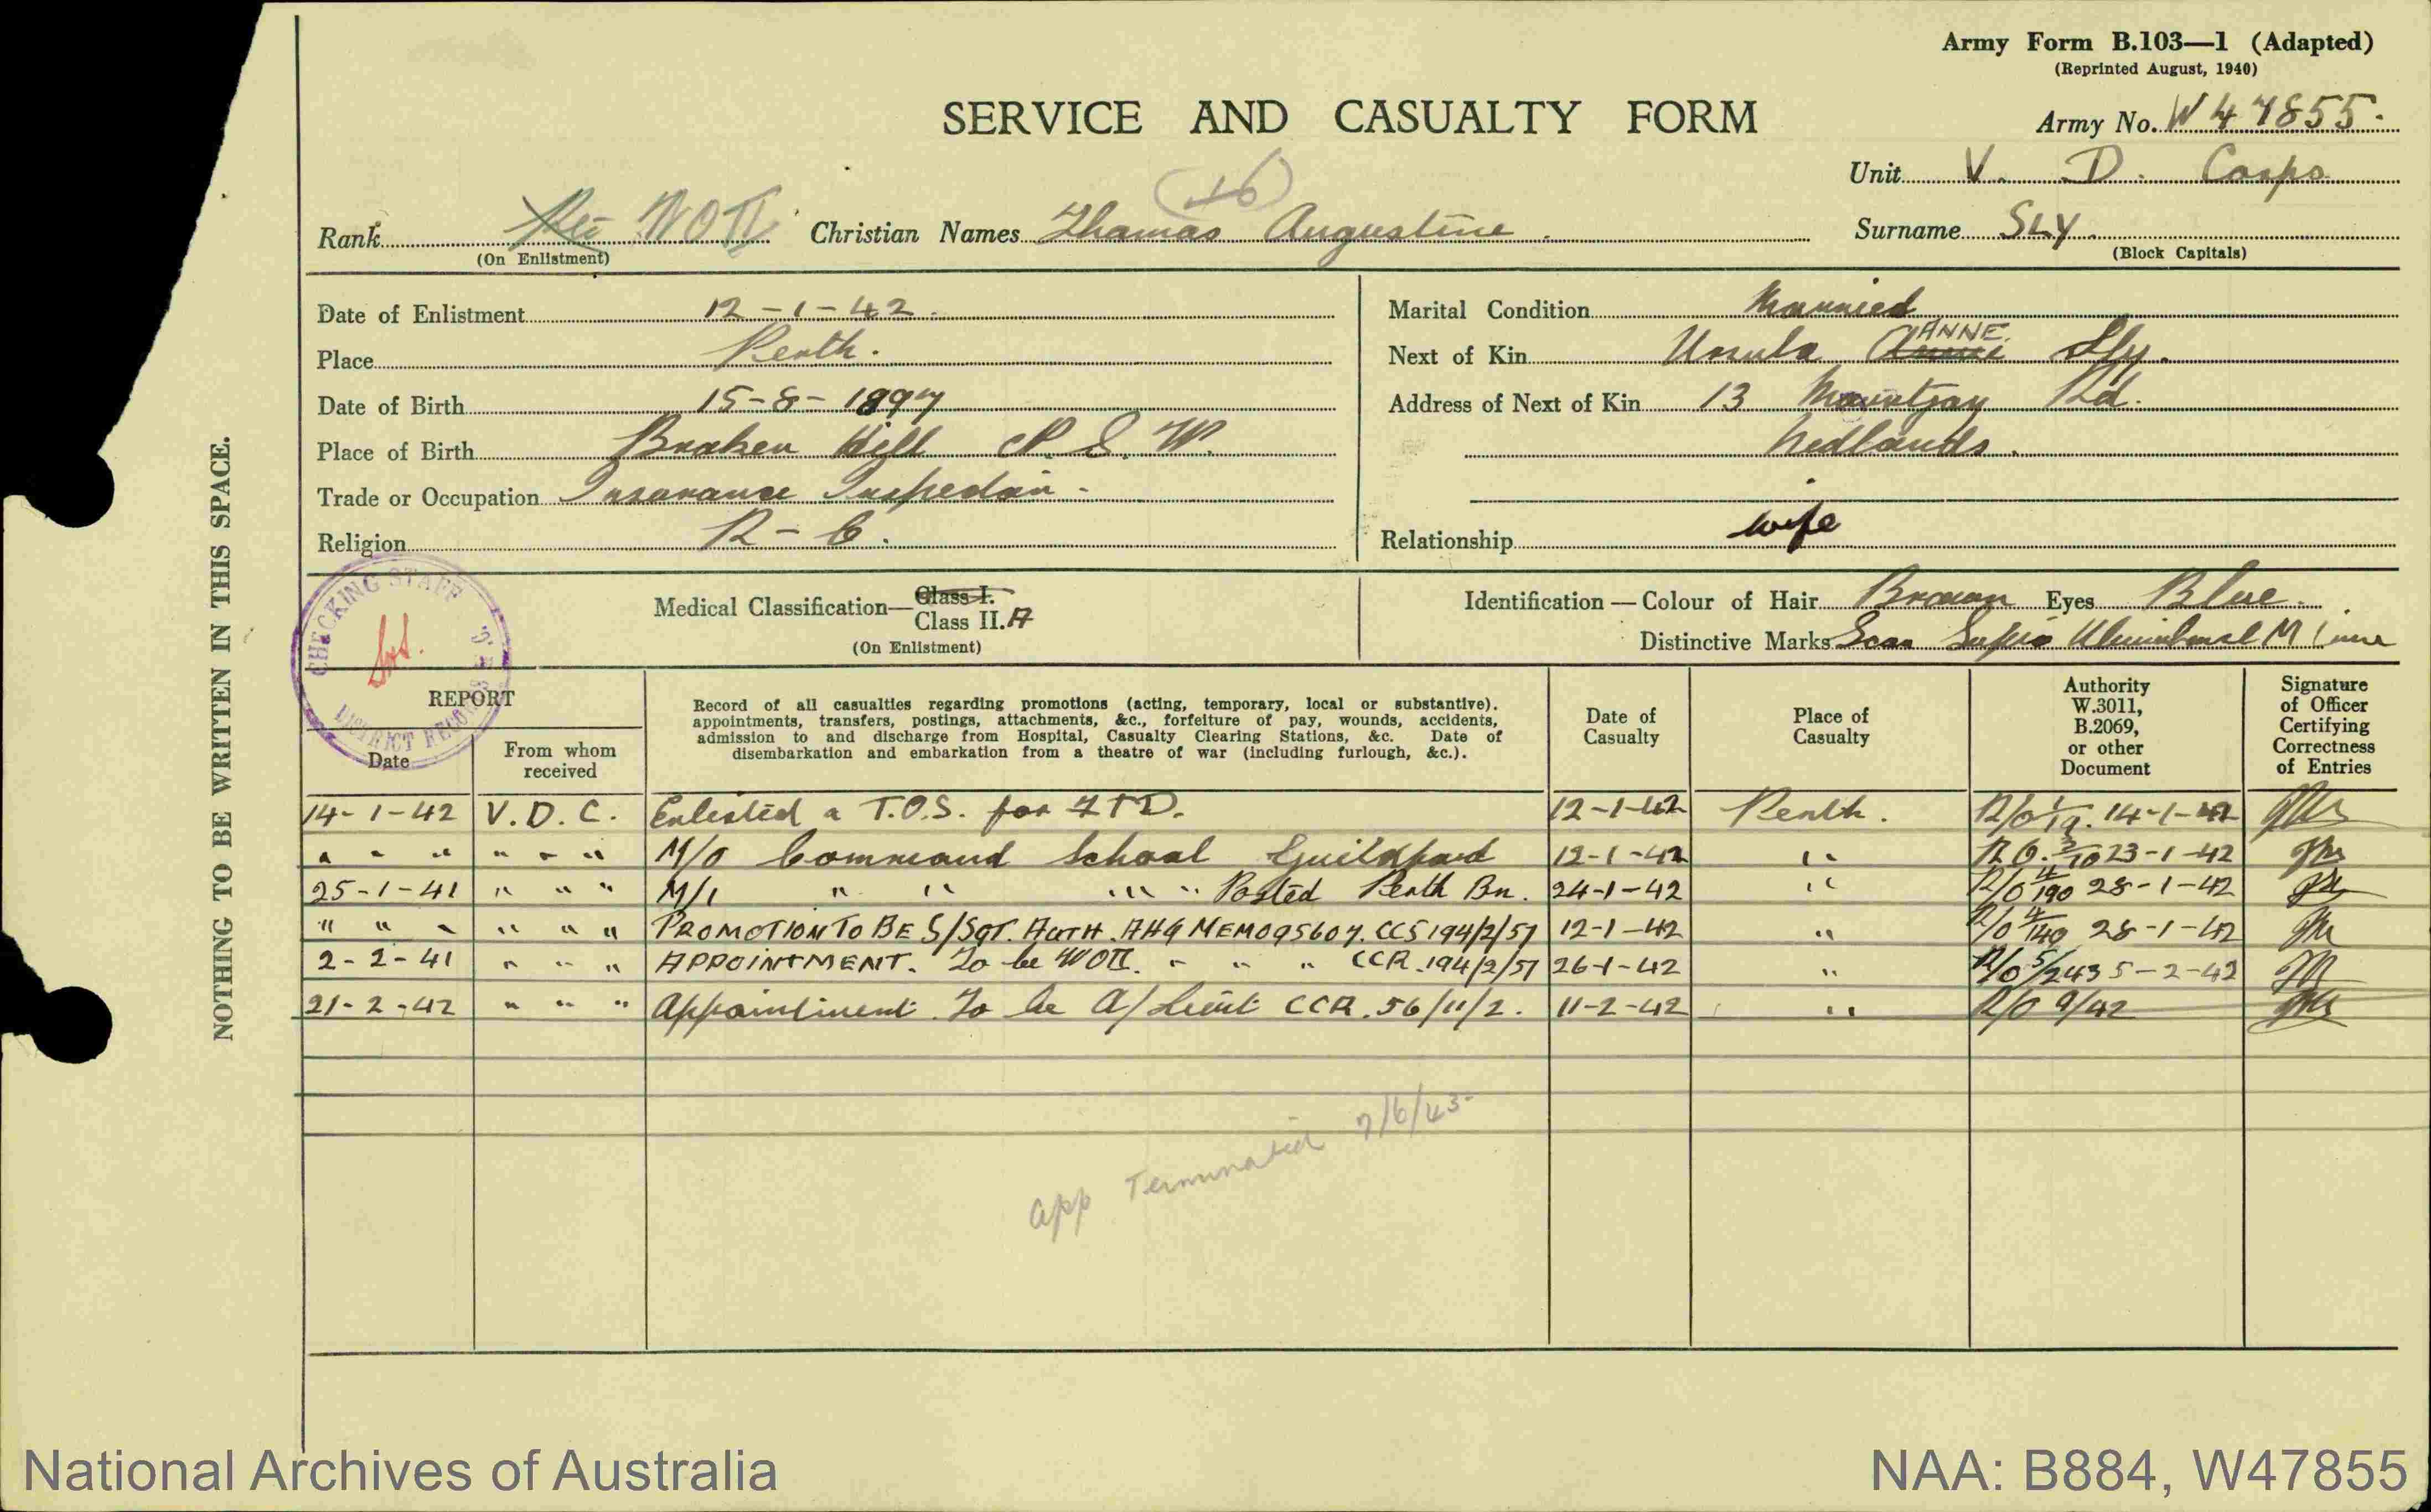 Army Form B.103—1 (Adapted)
(Reprinted August, 1940)
SERVICE AND CASUALTY FORM
Army No. W47855.
Unit V. D. Corps
(16)
Rank Pte WOII Christian Names Thomas Augustine. Surname SLY.
(On Enlistment) (Block Capitals)
Date of Enlistment 12-1-42. Marital Condition Married
Place Perth. Next of Kin Ursula Annie ANNE Sly.
Date of Birth 15-8-1897 Address of Next of Kin 13 Mountjoy Rd.
Place of Birth Broken Hill N.S.W. Nedlands.
Trade or Occupation Insurance Inspector.
Religion R-C. Relationship wife
CHECKING STAFF
DISTRICT RECORDS
Medical Classification— Class I. Class II. A
(On Enlistment)
Identification — Colour of Hair Brown Eyes Blue.
Distinctive Marks Scar M Line
REPORT
Date
From whom received
Record of all casualties regarding promotions (acting, temporary, local or substantive).
appointments, transfers, postings, attachments, &c., forfeiture of pay, wounds, accidents,
admission to and discharge from Hospital, Casualty Clearing Stations, &c. Date of
disembarkation and embarkation from a theatre of war (including furlough, &c.).
Date of Casualty
Place of Casualty
Authority W.3011, B.2069, or other Document
Signature of Officer Certifying Correctness of Entries
14-1-42 V.D.C. Enlisted & T.O.S. for FTD. 12-1-42 Perth. R/O 14-1-42
" " " " " " M/O Command School Guildford 12-1-42 " R.O. 3/10 23-1-42
25-1-41 " " " M/I " " " " Posted Perth Bn. 24-1-42 " R/O 4/190 28-1-42
" " " " " " PROMOTION TO BE S/SGT. AUTH. AHQ MEMO 95607. CCS 194/2/57 12-1-42 " R/O 4/140 28-1-42
2-2-41 " " " APPOINTMENT. To be WOII. " " " CCR. 194/2/57 26-1-42 " R/O 5/243 5-2-42
21-2-42 " " " Appointment To be A/Lieut CCR. 56/11/2. 11-2-42 " R/O 9/42
App Terminated 7/6/43
NOTHING TO BE WRITTEN IN THIS SPACE.
National Archives of Australia
NAA: B884, W47855